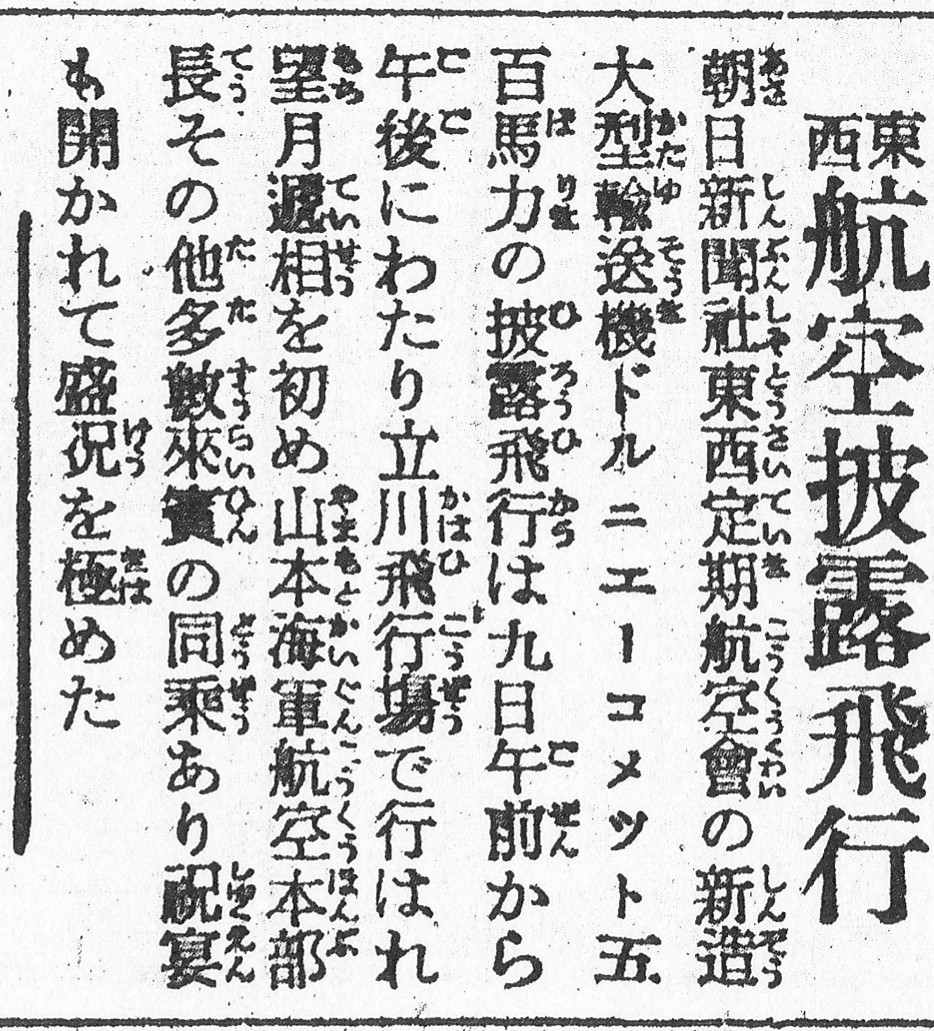 東西航空披露飛行
朝日新聞社東西定期航空會の新造
大型輸送機ドルニエーコメット五
百馬力の披露飛行は九日午前から
午後にわたり立川飛行場で行はれ
望月遞相を初め山本海軍航空本部
長その他多數來賓の同乘あり祝宴
も開かれて盛况を極めた